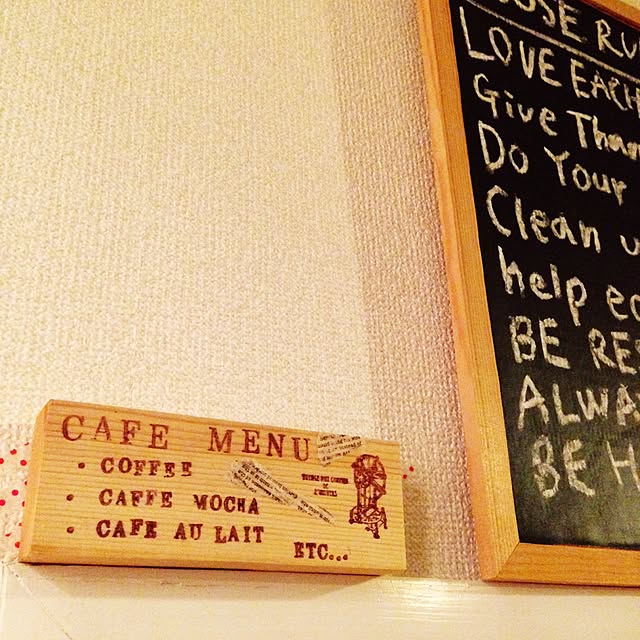 CAFE MENU
• COFFEE
• CAFFE MOCHA
• CAFE AU LAIT
ETC...
RU
LOVE EACH
Give Than
Do Your
Clean u
help ea
BE RE
ALWA
BE H